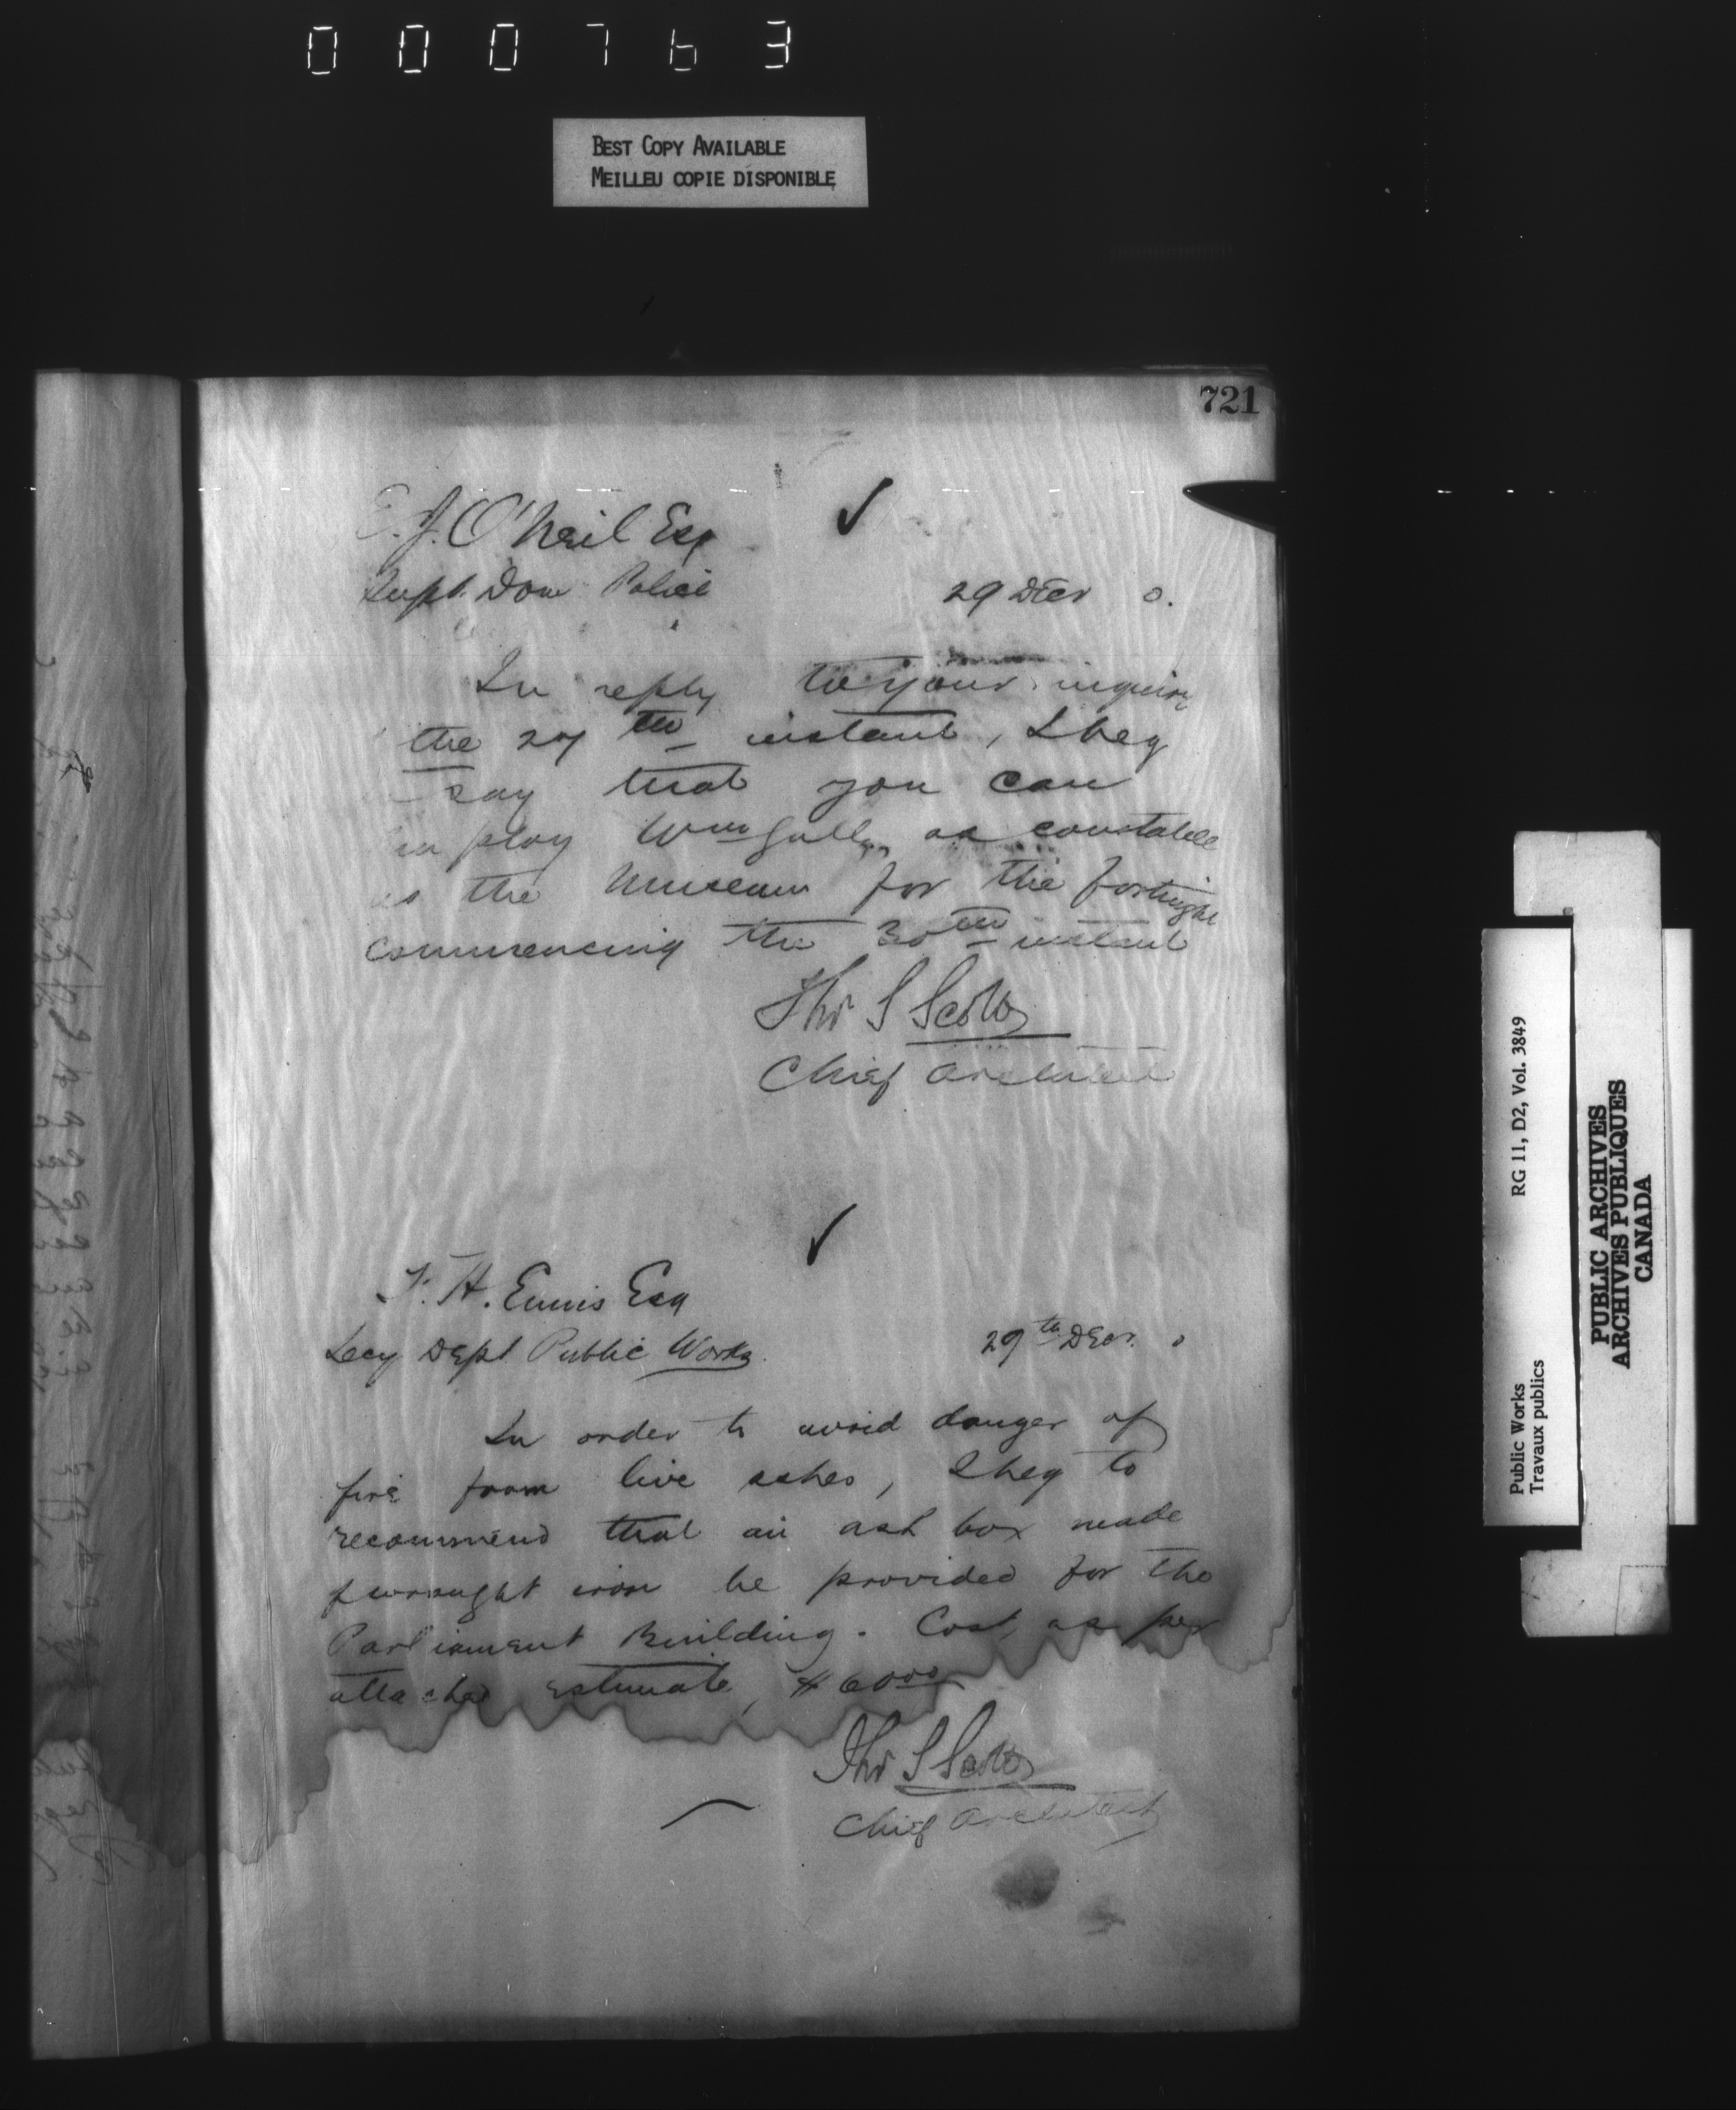 000763
BEST COPY AVAILABLE
MEILLEU COPIE DISPONIBLE
721
E. J. O'Neil Esq
Supt. Dom Police
29 Decr 0.
In reply to your inquiry
the 27th instant, I beg
say that you can
employ Wm as constable
the Museum for the fortnight
commencing the 30th instant
Thos S Scott
Chief Architect
F. H. Ennis Esq
Secy Dept Public Works.
29th Decr. 0
In order to avoid danger of
fire from live ashes, I beg to
recommend that an ash box made
f wrought iron be provided for the
Parliament Building. Cost, as per
attached estimate, $60.00
Thos S Scott
Chief Architect
RG 11, D2, Vol. 3849
Public Works
Travaux publics
PUBLIC ARCHIVES
ARCHIVES PUBLIQUES
CANADA